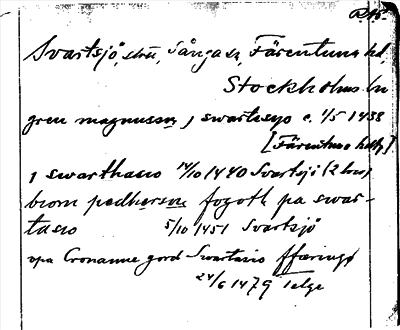 Svartsjö, slott, Sånga sn, Färentuna hd,
Stockholms ln
green magnusson j swartesyo c. 1/5 1438
[Färentuna hdt]
j swarthasio 14/10 1440 Svartsjö (2 brev)
biorn pædhersson fogoth pa swar-
tasio 5/10 1451 Svartsjö
vpa Cronanne gord Swartasio ffæringø
24/6 1479 Telge